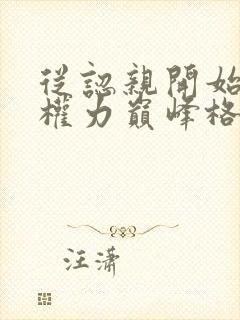 從認親開始
權力巔峰格
汪潇